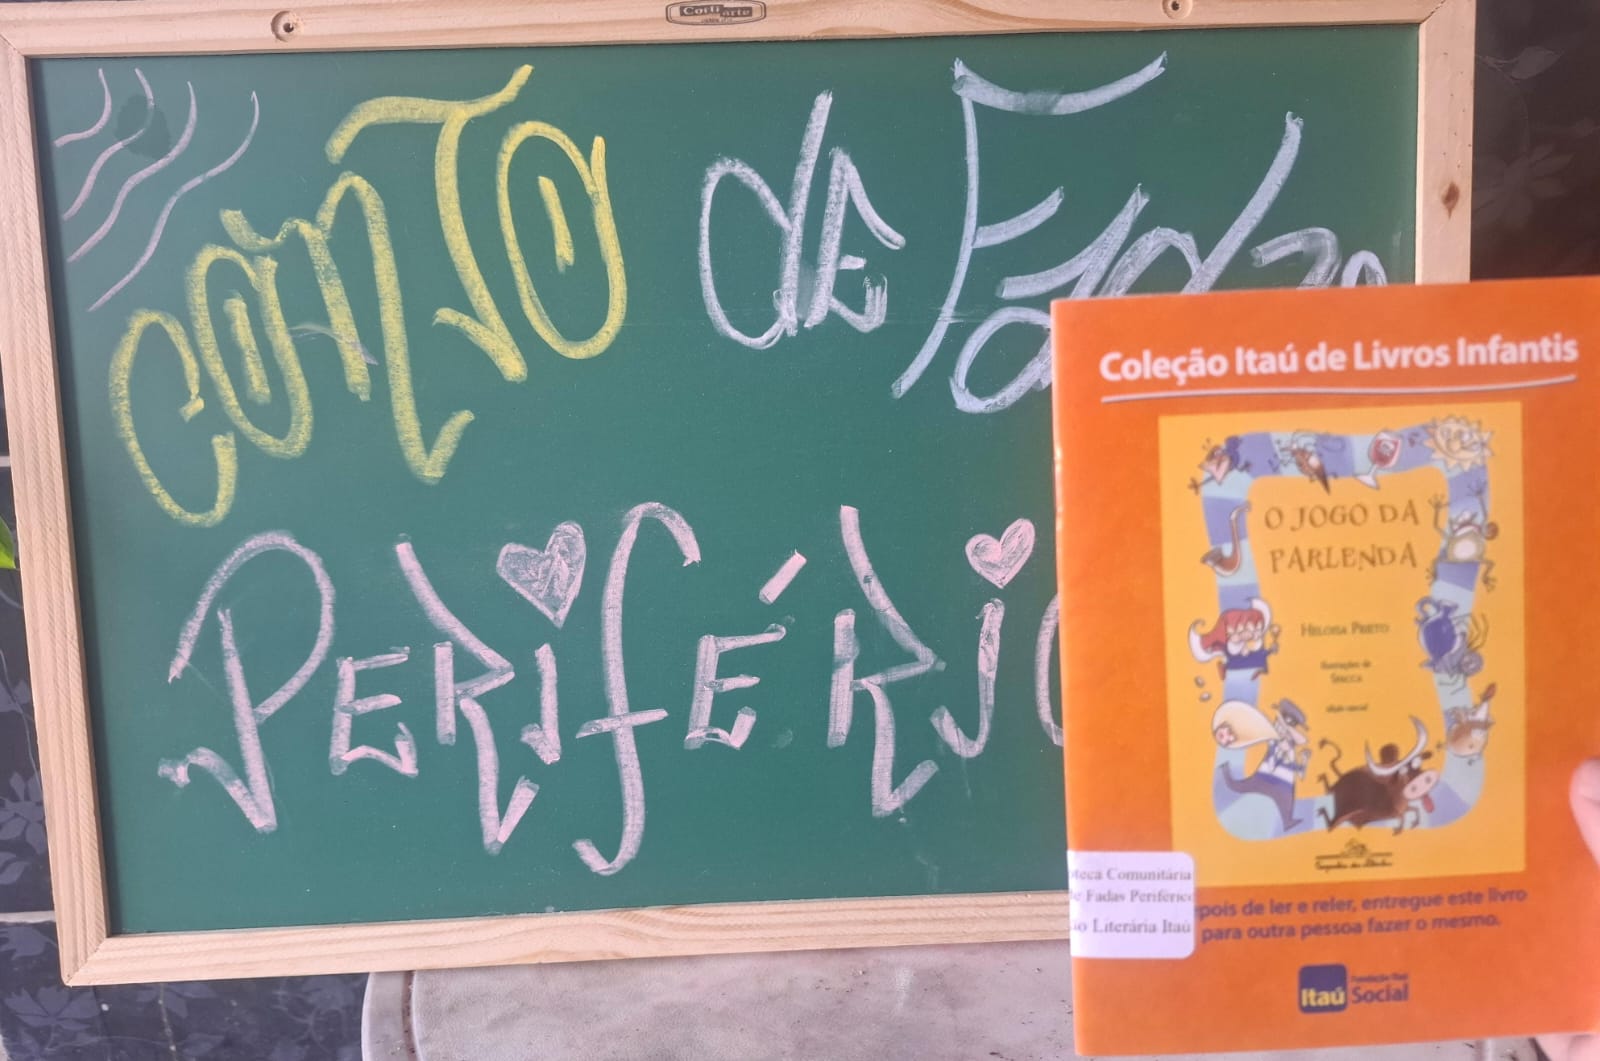 Corti arte
CONTO
dE FADAS
PERIFÉRIC
Coleção Itaú de Livros Infantis
O JOGO DA
PARLENDA
HELOISA PRIETO
Ilustrações de
SPACCA
edição especial
Companhia das Letrinhas
oteca Comunitária
e Fadas Periféric
ão Literária Itaú
epois de ler e reler, entregue este livro
para outra pessoa fazer o mesmo.
Fundação Itaú
Itaú Social